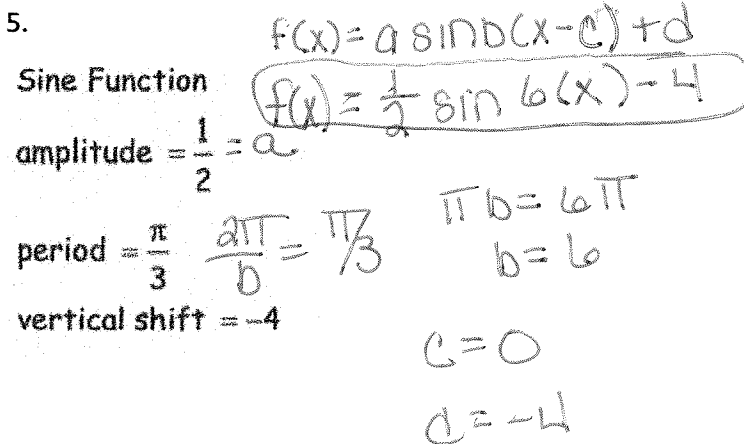 5.
f(x) = a sin b(x - c) + d
Sine Function
f(x) = 1/2 sin 6(x) - 4
amplitude = 1/2 = a
period = π/3 2π/b = π/3 πb = 6π
b = 6
vertical shift = -4
c = 0
d = -4